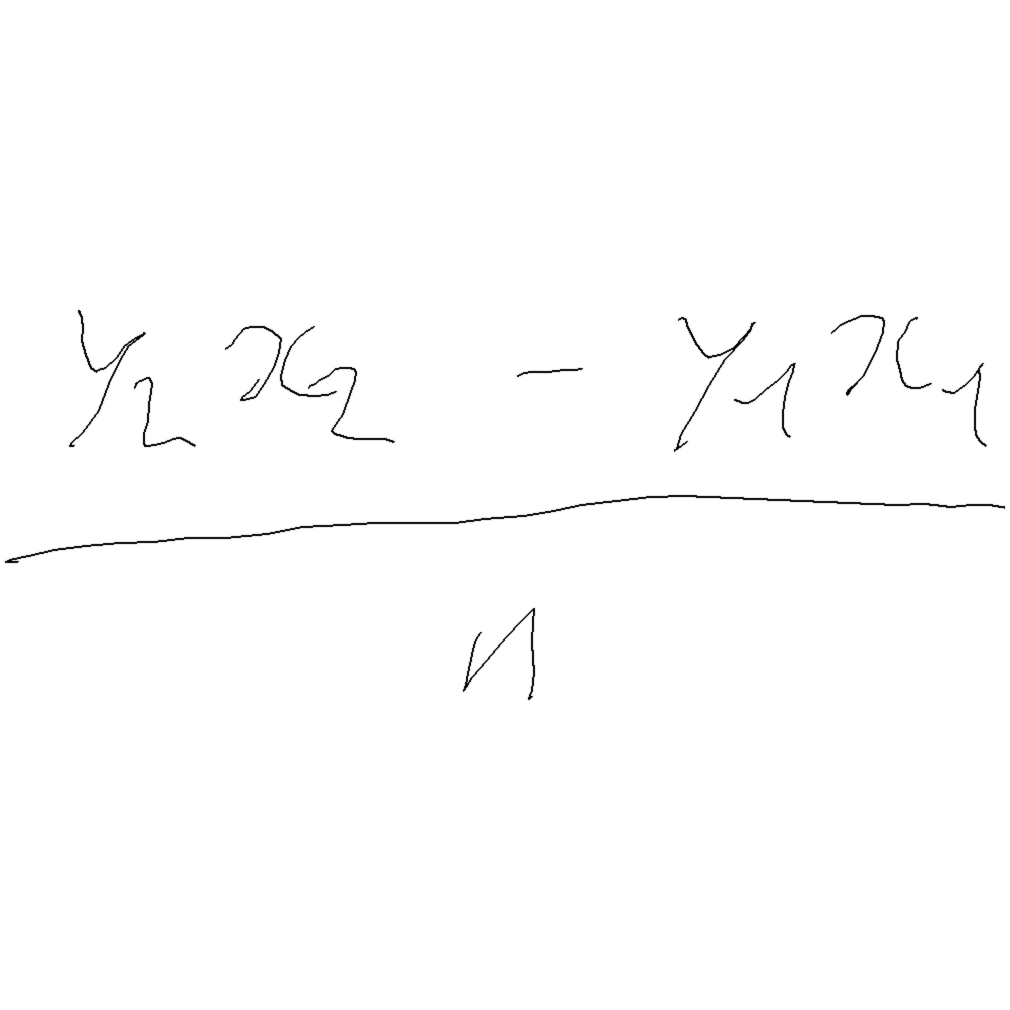 y₂x₂ − y₁x₁
n